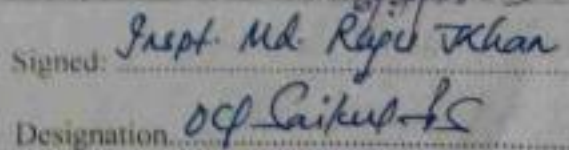 Signed: Inspt. Md. Raju Khan
Designation. OC Saikul PS